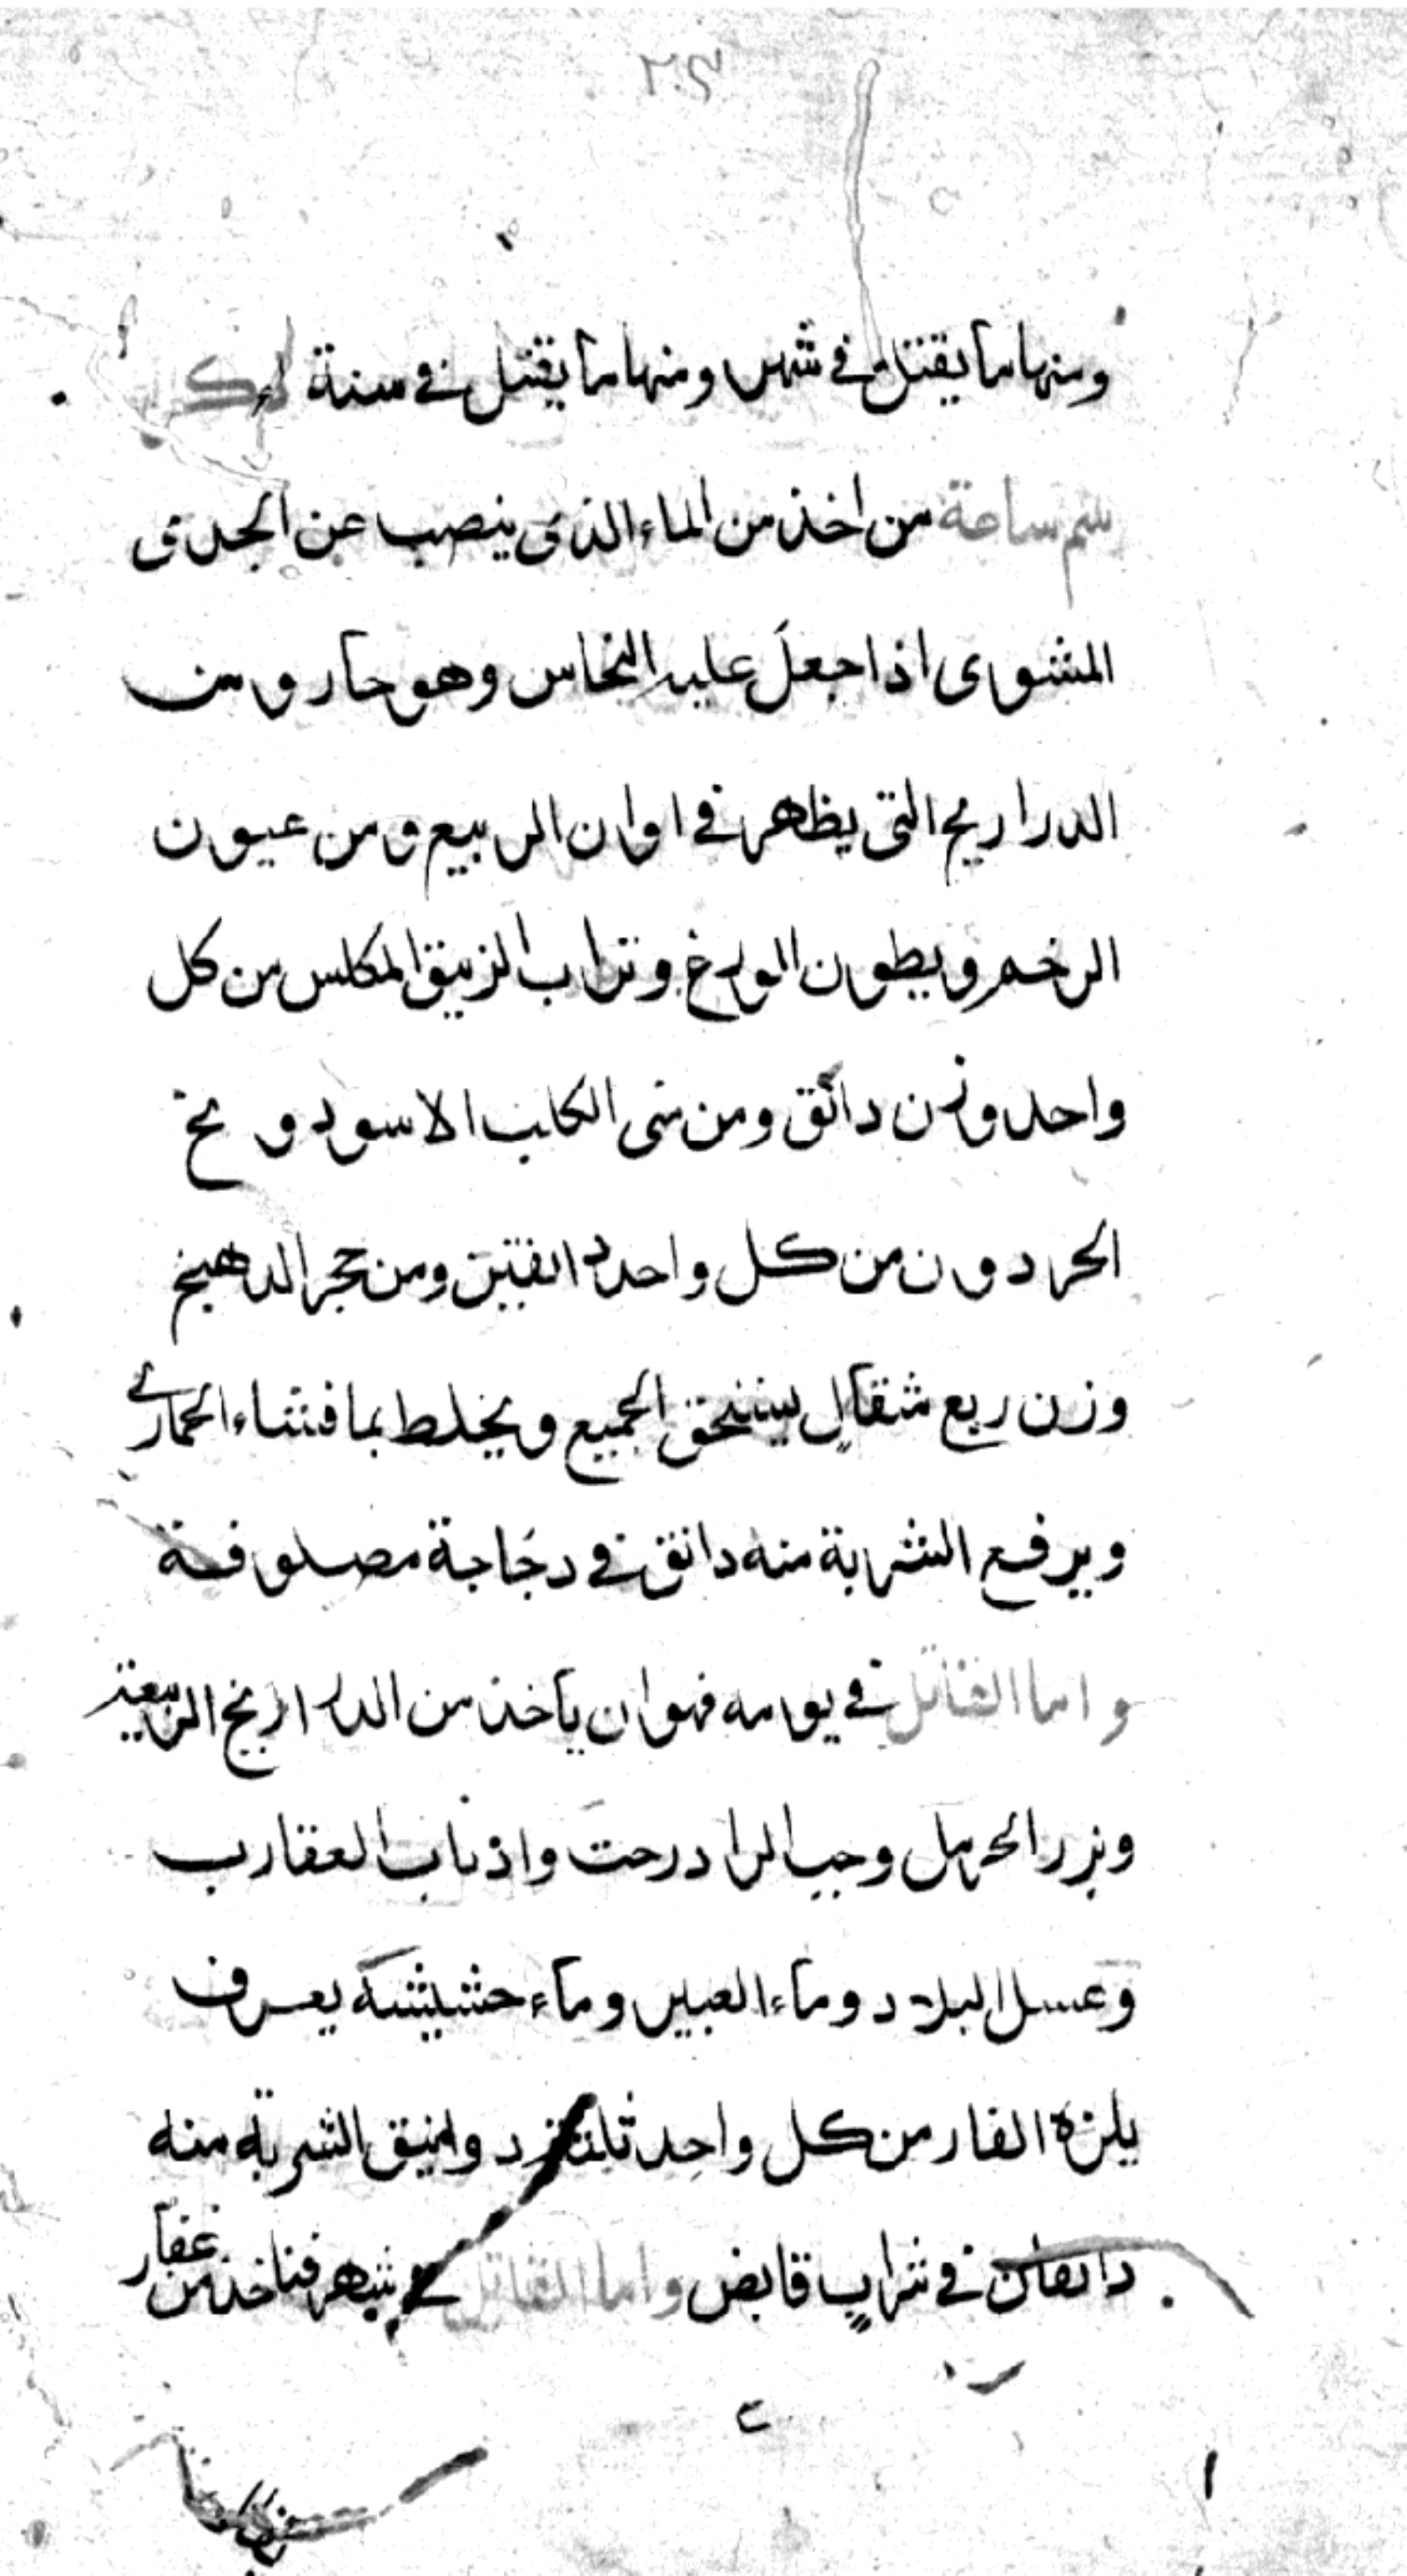 ومنها ما يقتل في شهر ومنها ما يقتل في سنة
سم ساعة من اخذ من الماء الذى ينصب عن الجدى
المشوى اذا جعل عليه النحاس وهو حار ومن
الدراريج التى يظهر في اوان الربيع ومن عيون
الرخم وبطون الوزغ وتراب الزيبق المكلس من كل
واحد وزن دانق ومن منى الكلب الاسود و مخ
الحردون من كل واحد دانقين ومن حجر الدهنج
وزن ربع مثقال يستحق الجميع ويخلط بما قثاء الحمار
ويرفع الشربة منه دانق في دجاجة مصلوقة
واما القاتل في يومه فهو ان ياخذ من الدراريج الربيعية
وبزر الحرمل وحب واذناب العقارب
وعسل البلادر وماء العبير وماء حشيشة يعرف
الفار من كل واحد دوانيق الشربة منه
دانقان في شراب قابض واما القاتل في شهر فتاخذ من